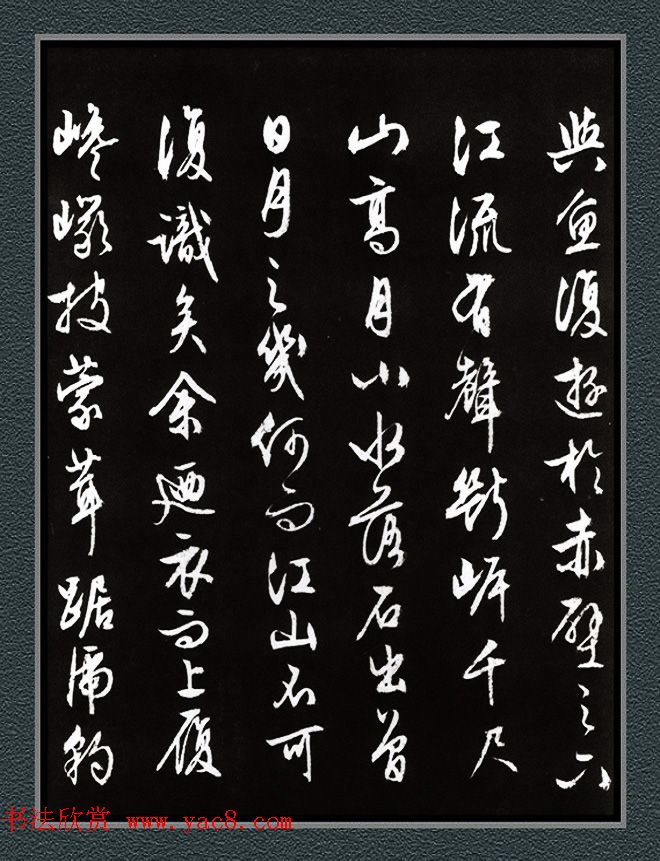 與魚復遊於赤壁之下
江流有聲斷岸千尺
山高月小水落石出曾
日月之幾何而江山不可
復識矣余迺衣而上履
巉巖披蒙茸踞虎豹
书法欣赏 www.yac8.com